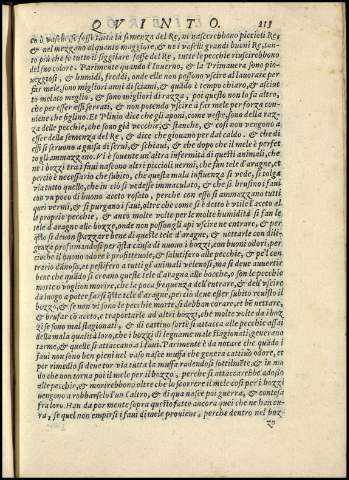 QVINTO. 213
en ò vaso, se fosse tutta la semenza del Re, vi nascerebbono piccioli Re,
& nel mezzano alquanto maggiore, & ne i vaselli grandi buoni Re, tan-
to più che se tutto il soggiare fosse del Re, tutte le pecchie riuscirebbono
del suo colore. Parimente quando l'Inuerno, & la Primauera sono pio-
ueggiosi, & humidi, freddi, onde elle non possono vscire al lauorare per
far mele, sono migliori ami di sciami, & quãdo è tempo chiaro, & asciut
to melaio meglio, & sono migliori di razza, poi questo non lo fa altro,
che per esse esser serrati, & non potendo vscire à far mele per forza con-
uiene che figlino. Et Plinio dice che gli aponi, come vesso, sono della raz-
za delle pecchie, che sono già vecchie, & stanche, & così non vengono à
esser della semenza del Re, & dice che giouano per dar caldo. & che di
essi si seruono à guisa di serui, & schiaui, & che dopo che il mele è perfet
to gli ammazzano. Vi è souente un'altra infermità di questi animali, che
ne i bozzi trà i faui nascono altri piccioli vermi, che fan tele d'aragne, et
perciò è necessario che subito, che questa mala influenza si vede, si tolga
via tutto quello, che in ciò si vedesse immaculato, & che si brusino i faui
con vn poco di buono aceto rosato, perche con esso si ammazzano tutti
quei vermi, & si purgano i faui, oltre che come s'è detto è vtile l'aceto al
le proprie pecchie, & anco molte volte per le molte humidità si fan le
tele d'aragne alle bozze, onde non possongli api vscire ne entrare, & per
q̃sto si deuon spazzare bene di quelle tele d'aragne, & nettarle con dili-
genza profumandosi per q̃sta causa di nuouo i bozzi, con buoni odori, per
cioche il buono odore è profitteuole, & salutifero alle pecchie, & p̃ el con
trario dãnoso, et pestifero a tutti gl'animali velenosi, ma si deue auuertir
bene, che quando si creano queste tele d'aragne alle bocche, o son le pecchie
morte o voglion morire, che la poca frequenza dell'entrare, & dell'vscire
dà luogo a poter farsi q̃lle tele d'aragne, per ciò deue esser subito reuisto il
bozzo, & se non vi sono le pecchie morte, si debbon cõrare, et bẽ nettare,
& brusar cõ aceto, e traportarle ad altri bozzi, che molte volte da i boz
zi se sono mal stagionati, & di cattiuo sorte si attacca alle pecchie assai
della mala qualità loro, et i bozzi di legname male stagionati, generano
tarme, & quelle si attaccano a i faui. Parimente è da notare che quãdo i
faui non sono ben pieni nel vaso nasce muffa che genera cattiuo odore, et
per rimedio si deue tor via tutta la muffa radendola sottilmẽte, & in mo
do che non torna poi il mele per il bozzo, perche si attaccarebbe adosso
alle pecchie, & morirebbono oltre che lo scorrere il mele così per i bozzi
uengono a robbarselo l'un l'altro, & di qua nasce poi guerra, & contesa
fra loro. Han da por mente sopra questo fatto ancora quei che ne han cu-
ra, se quel non empirsi i faui di mele prouiene, perche dentro nel boz-
zo